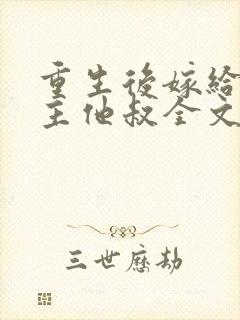 重生後嫁給
主他叔全文
三世歷劫